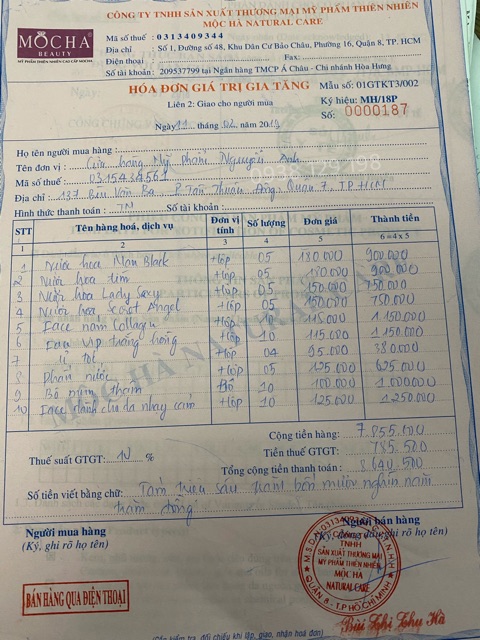 CÔNG TY TNHH SẢN XUẤT THƯƠNG MẠI MỸ PHẨM THIÊN NHIÊN
MỘC HÀ NATURAL CARE
MOCHA
BEAUTY
MỸ PHẨM THIÊN NHIÊN CAO CẤP MOCHA
Mã số thuế : 0313409344
Địa chỉ : Số 1, Đường số 48, Khu Dân Cư Bảo Châu, Phường 16, Quận 8, TP. HCM
Điện thoại : Fax:
Số tài khoản : 209537799 tại Ngân hàng TMCP Á Châu - Chi nhánh Hòa Hưng
HÓA ĐƠN GIÁ TRỊ GIA TĂNG
Mẫu số: 01GTKT3/002
Liên 2: Giao cho người mua
Ký hiệu: MH/18P
Ngày 11 tháng 02 năm 2019
Số: 0000187
Họ tên người mua hàng :
Tên đơn vị : Cửa hàng Mỹ Phẩm Nguyễn Anh
0938129198
Mã số thuế :
Địa chỉ : 137 Bùi Văn Ba P. Tân Thuận Đông, Quận 7, TP.HCM
Hình thức thanh toán : TM Số tài khoản :
STT Tên hàng hoá, dịch vụ Đơn vị tính Số lượng Đơn giá Thành tiền
1 2 3 4 5 6=4x5
1 Nước hoa Man Black Hộp 05 180.000 900.000
2 Nước hoa tím Hộp 05 180.000 900.000
3 Nước hoa Lady Sexy Hộp 05 150.000 750.000
4 Nước hoa Angel Hộp 05 150.000 750.000
5 Face nám Collagen Hộp 10 115.000 1.150.000
6 Face Vip trắng hồng Hộp 10 115.000 1.150.000
7 Hộp 04 95.000 380.000
8 Phấn nước Hộp 05 125.000 625.000
9 Bộ nám thâm Bộ 10 100.000 1.000.000
10 Face dành cho da nhạy cảm Hộp 10 125.000 1.250.000
MỘC HÀ NATURAL CARE
Cộng tiền hàng: 7.855.000
Thuế suất GTGT: 10 % Tiền thuế GTGT: 785.500
Tổng cộng tiền thanh toán : 8.640.500
Số tiền viết bằng chữ: Tám triệu sáu trăm bốn mươi nghìn năm
trăm đồng
Người mua hàng Người bán hàng
(Ký, ghi rõ họ tên) (Ký, đóng dấu, ghi rõ họ tên)
M.S.D.N:0313409344-C.T.T.N.H.H
CÔNG TY
TNHH
SẢN XUẤT THƯƠNG MẠI
MỸ PHẨM THIÊN NHIÊN
MỘC HÀ
NATURAL CARE
QUẬN 8 - T.P HỒ CHÍ MINH
BÁN HÀNG QUA ĐIỆN THOẠI
Bùi Thị Thu Hà
(Cần kiểm tra, đối chiếu khi lập, giao, nhận hoá đơn)